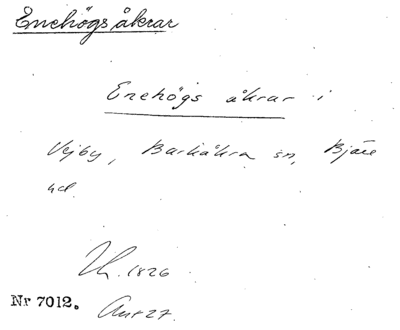 Enehögs åkrar
Enehögs åkrar i
Vejby, Barkåkra sn, Bjäre
hd.
1826
Nr 7012.
27.